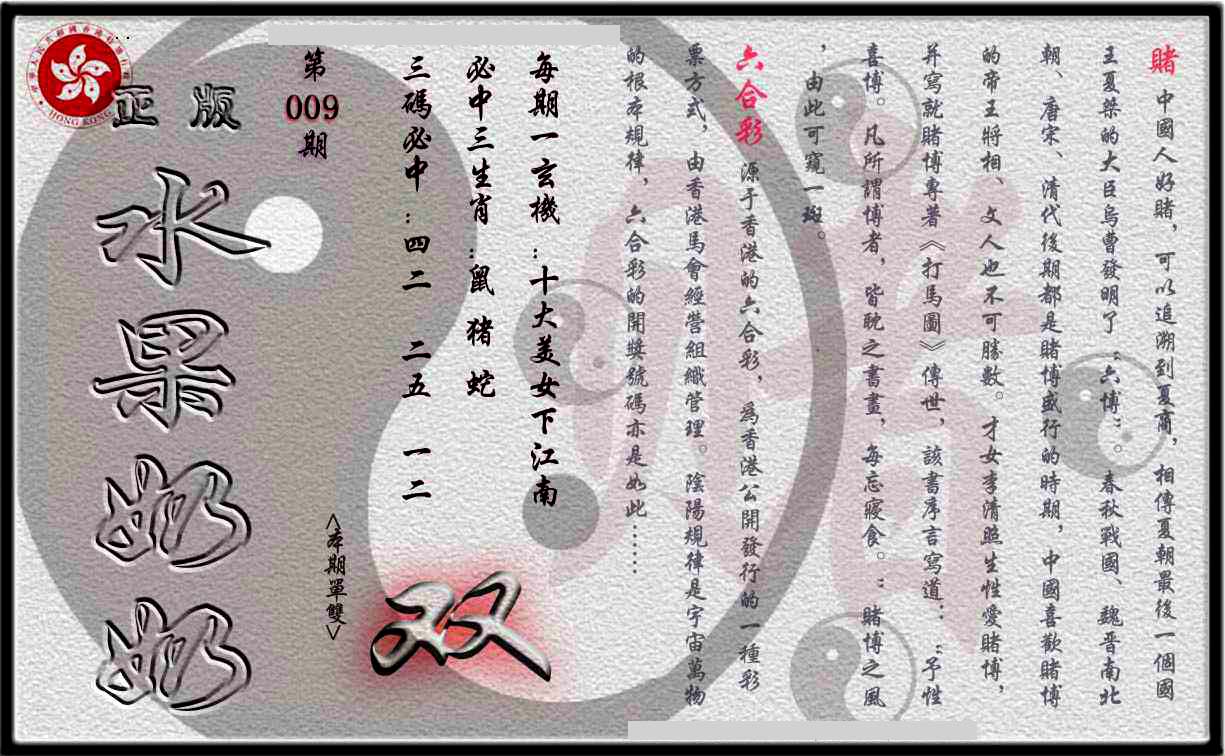 賭 中國人好賭，可以追溯到夏商，相傳夏朝最後一個國
王夏桀的大臣烏曹發明了“六博”。春秋戰國、魏晋南北
朝、唐宋、清代後期都是賭博盛行的時期，中國喜歡賭博
的帝王將相、文人也不可勝數。才女李清照生性愛賭博，
并寫就賭博專著《打馬圖》傳世，該書序言寫道：“予性
喜博。凡所謂博者，皆耽之書畫，每忘寢食。”賭博之風
，由此可窺一斑。
六合彩 源于香港的六合彩，為香港公開發行的一種彩
票方式，由香港馬會經營組織管理。陰陽規律是宇宙萬物
的根本規律，六合彩的開獎號碼亦是如此……
每期一玄機：十大美女下江南
必中三生肖：鼠 猪 蛇
三碼必中：四二 二五 一二
<本期單雙>
双
第
009
期
正版
水果奶奶
HONG KONG